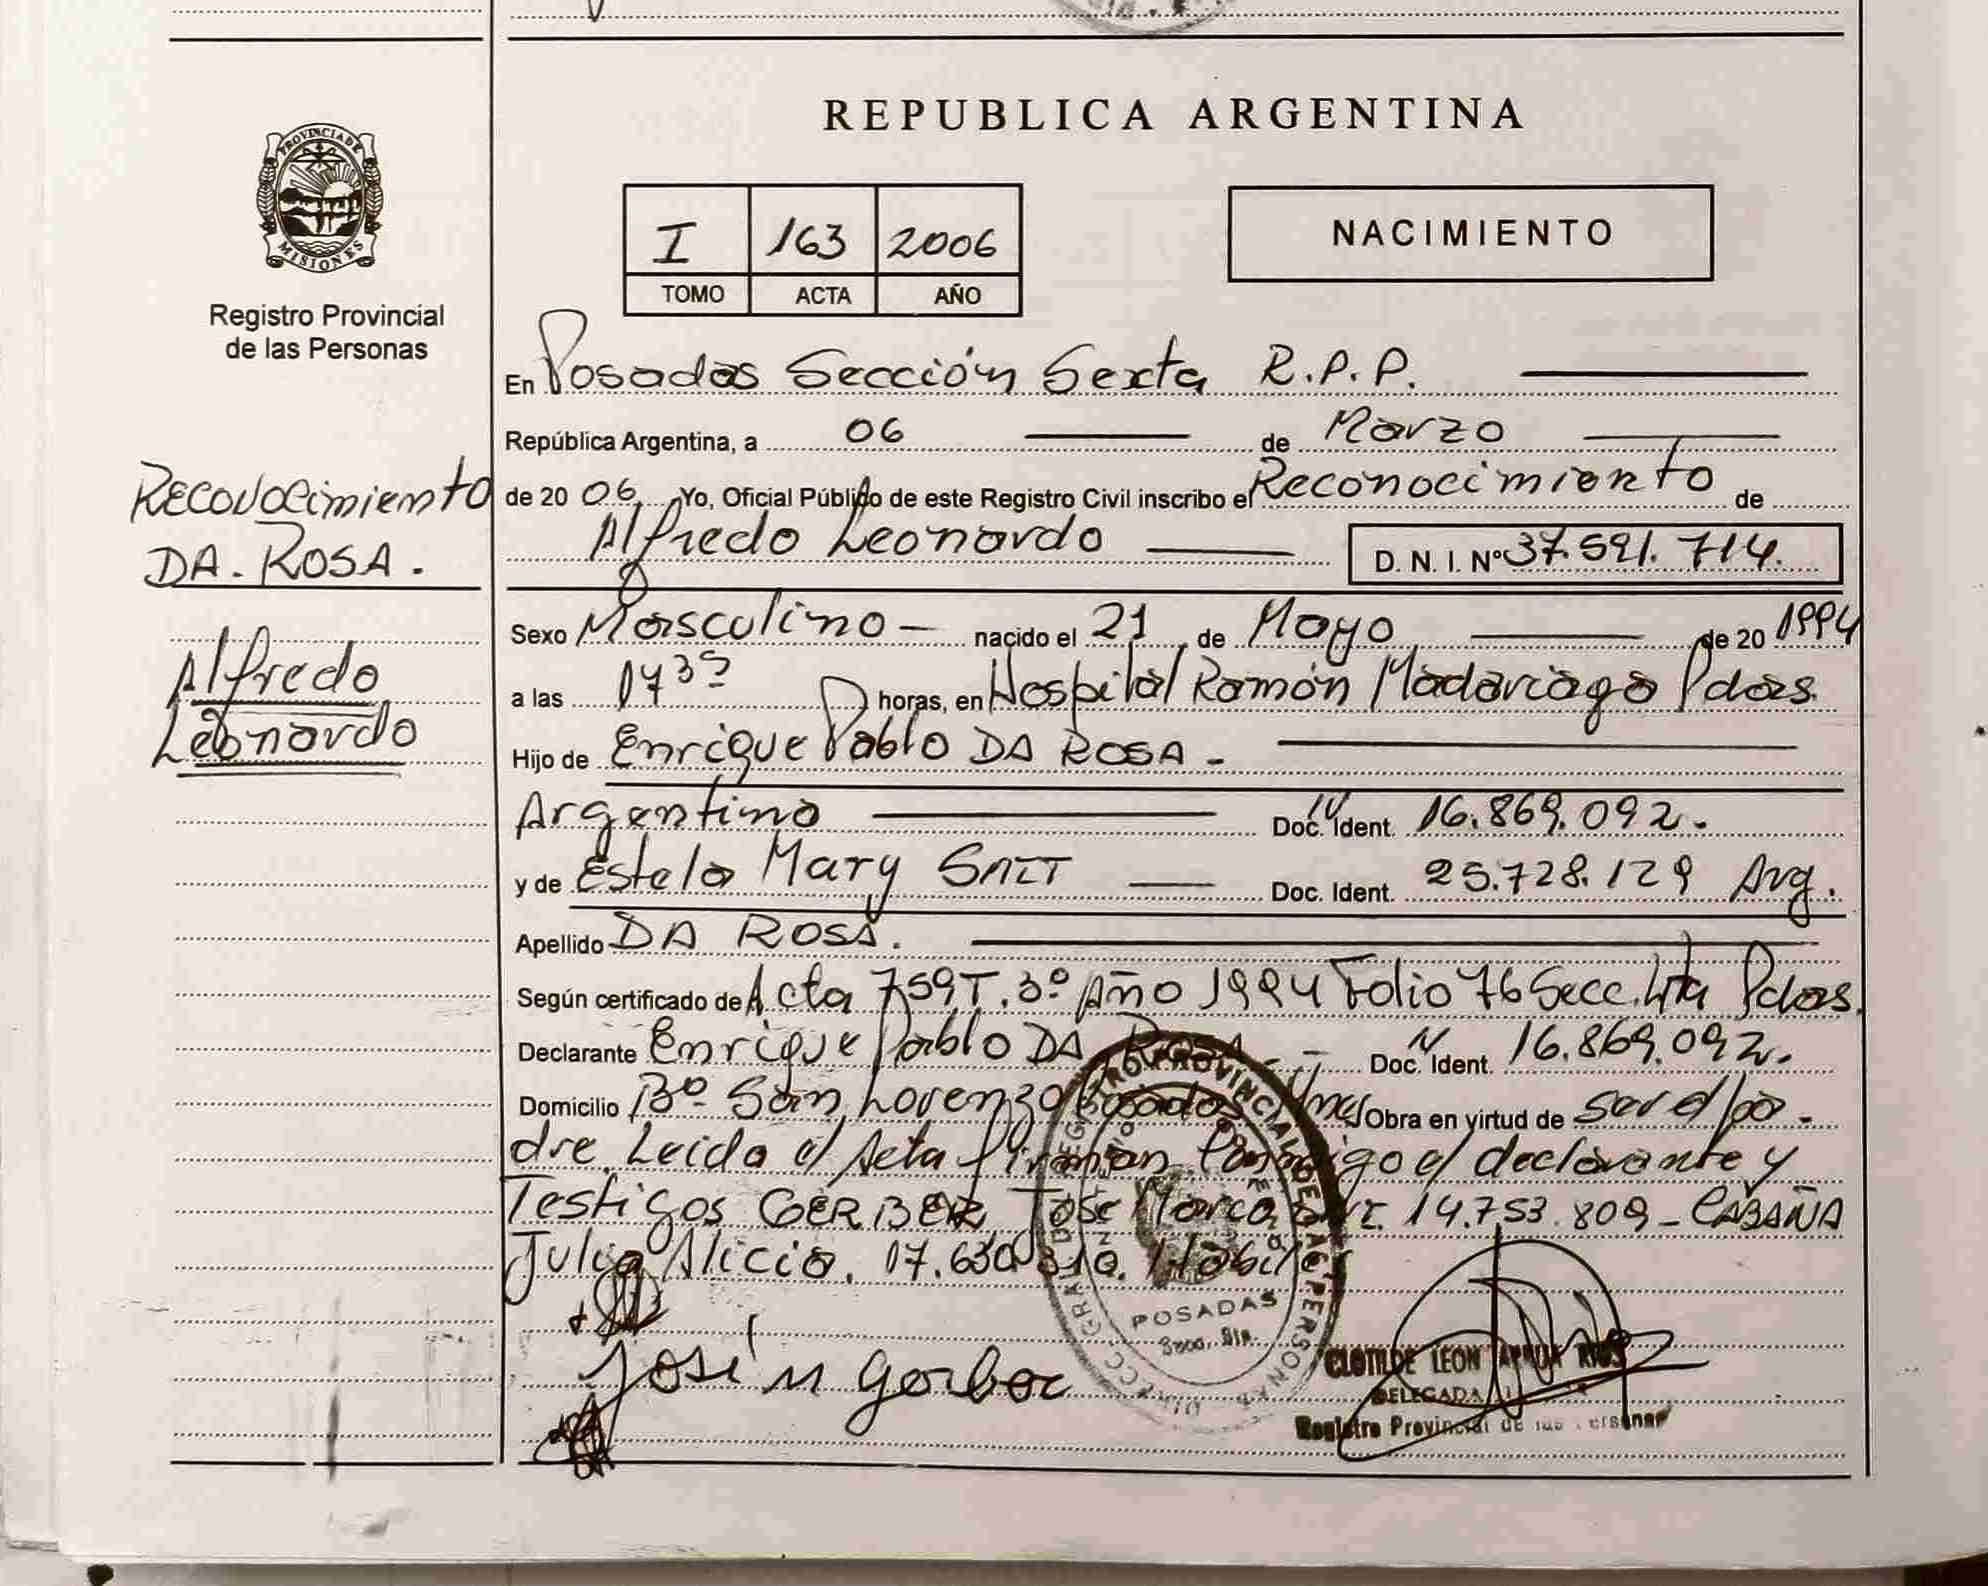 REPUBLICA ARGENTINA
PROVINCIA DE
MISIONES
Registro Provincial
de las Personas
I 163 2006
TOMO ACTA AÑO
NACIMIENTO
En Posadas Sección Sexta R.P.P.
República Argentina, a 06 de Marzo
Reconocimiento
DA. ROSA.
Alfredo
Leonardo
de 20 06 Yo, Oficial Público de este Registro Civil inscribo el Reconocimiento de
Alfredo Leonardo D. N. I. Nº 37.591.714.
Sexo Masculino nacido el 21 de Mayo de 20 1994
a las 17 35 horas, en Hospital Ramón Madariaga Pdas.
Hijo de Enrique Pablo DA ROSA.
Argentino Doc. Ident. 16.869.092.
y de Estela Mary Doc. Ident. 25.728.129 Arg.
Apellido DA ROSA.
Según certificado de Acta 759 T. 3º Año 1994 Folio 76 Secc. 4ta Pdas.
Declarante Enrique Pablo DA ROSA Doc. Ident. 16.869.092.
Domicilio Bº San Lorenzo Posados Mnes Obra en virtud de ser el pa-
dre. Leida el Acta firman conmigo el declarante y
Testigos GERBER José 14.753.809 - CABAÑA
Julia Alicia. 17.630.310. Habiles
José M Gerber
REGISTRO PROVINCIAL DE LAS PERSONAS
POSADAS
CLOTILDE LEON
DELEGADA
Registro Provincial de las Personas